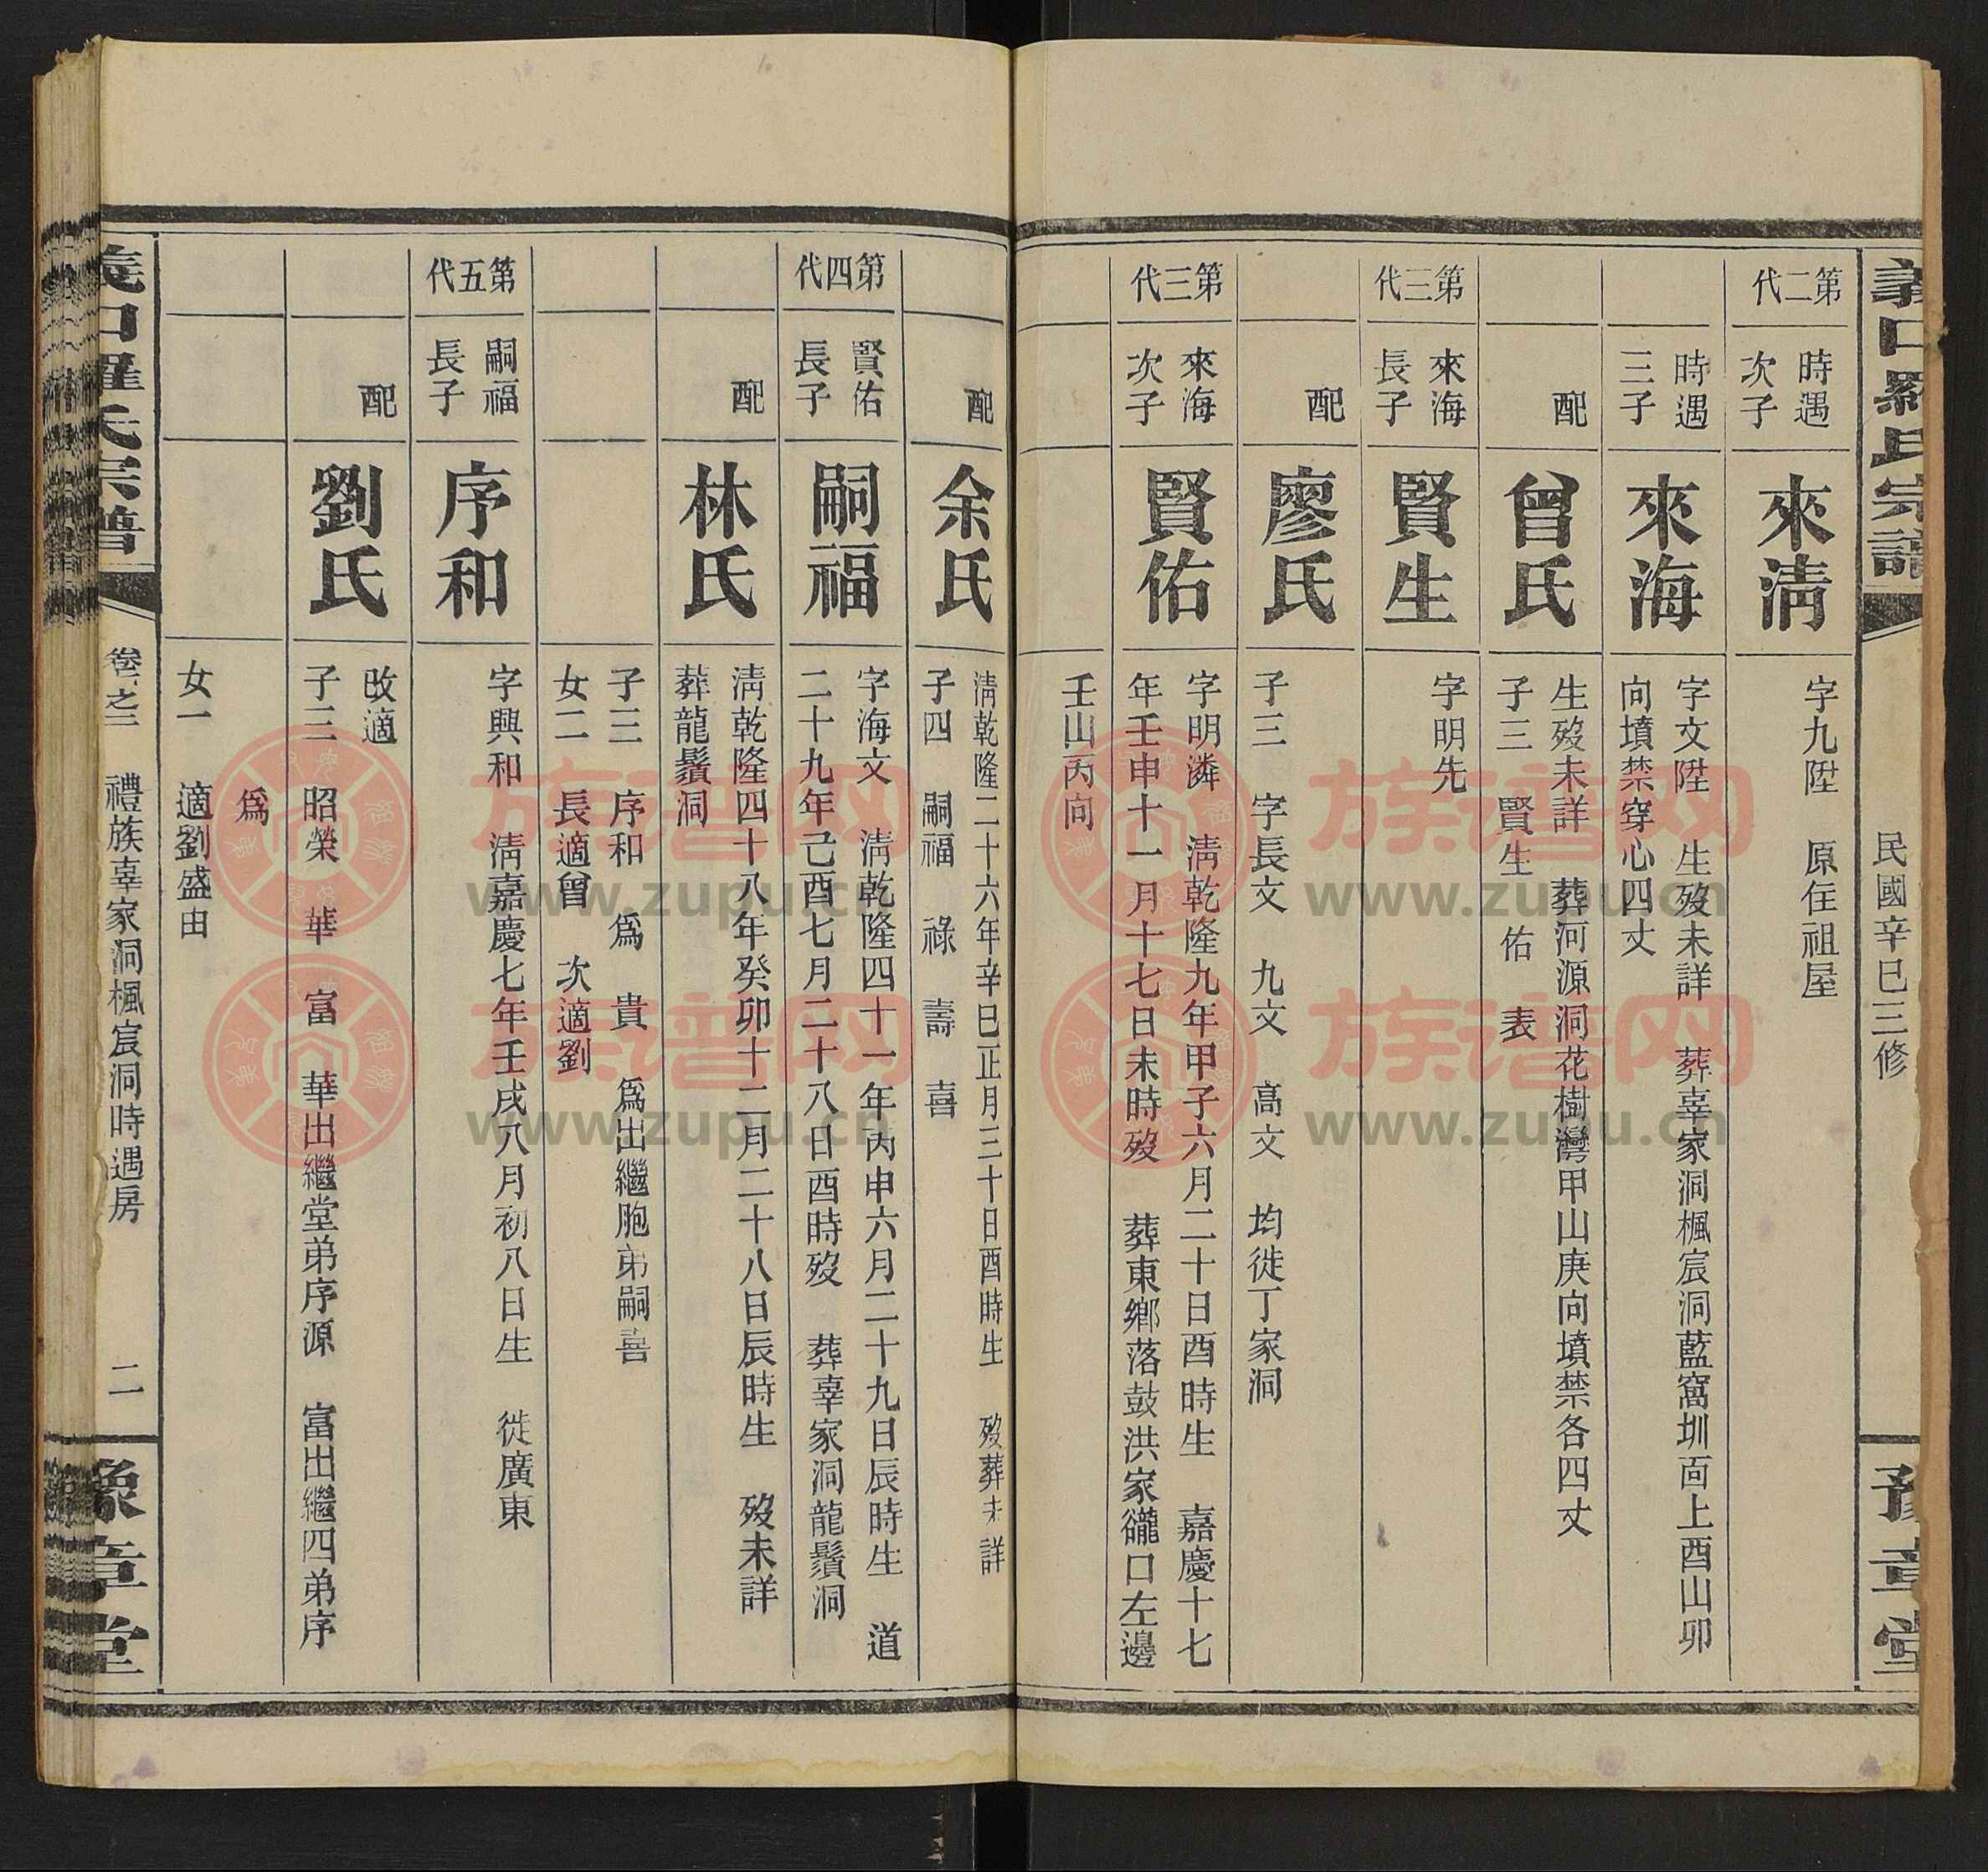 義口羅氏宗譜
民國辛巳三修
豫章堂
第二代
時遇
次子
來清
字九陞　原住祖屋
時遇
三子
來海
字文陞　生歿未詳　葬辜家洞楓宸洞藍窩圳面上酉山卯
向墳禁穿心四丈
配
曾氏
生歿未詳　葬河源洞花樹灣甲山庚向墳禁各四丈
子三　賢生　佑　表
第三代
來海
長子
賢生
字明先
配
廖氏
子三　字長文　九文　高文　均徙丁家洞
第三代
來海
次子
賢佑
字明潾　清乾隆九年甲子六月二十日酉時生　嘉慶十七
年壬申十一月十七日未時歿　葬東鄉落鼓洪家巃口左邊
壬山丙向
配
余氏
清乾隆二十六年辛巳正月三十日酉時生　歿葬未詳
子四　嗣福　祿　壽　喜
第四代
賢佑
長子
嗣福
字海文　清乾隆四十一年丙申六月二十九日辰時生　道
二十九年己酉七月二十八日酉時歿　葬辜家洞龍鬚洞
配
林氏
清乾隆四十八年癸卯十二月二十八日辰時生　歿未詳
葬龍鬚洞
子三　序和　爲　貴　爲出繼胞弟嗣喜
女二　長適曾　次適劉
第五代
嗣福
長子
序和
字興和　清嘉慶七年壬戌八月初八日生　徙廣東
配
劉氏
改適
子三　昭榮　華　富　華出繼堂弟序源　富出繼四弟序
爲
女一　適劉盛由
義口羅氏宗譜
卷之二　禮族辜家洞楓宸洞時遇房
二
豫章堂
族谱网
www.zupu.cn
族谱网
www.zupu.cn
族谱网
www.zupu.cn
族谱网
www.zupu.cn